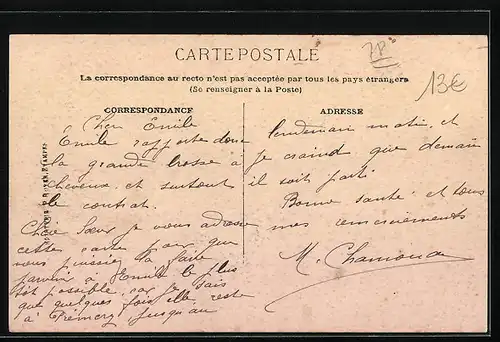 CARTE POSTALE
La correspondance au recto n'est pas acceptée par tous les pays étrangers
(Se renseigner à la Poste)
13€
CORRESPONDANCE
Cher Emile
Emile rapporte donc
la grande brosse à
cheveux et surtout
le contrat.
Chère Sœur je vous adresse
cette carte pour que
vous puissiez la faire
parvenir à Emile le plus
tôt possible, car je sais
que quelques fois elle reste
à Prémery jusqu'au
ADRESSE
lendemain matin, et
je craind que demain
il soit parti.
Bonne santé et tous
mes remerciements
M. Chamoux